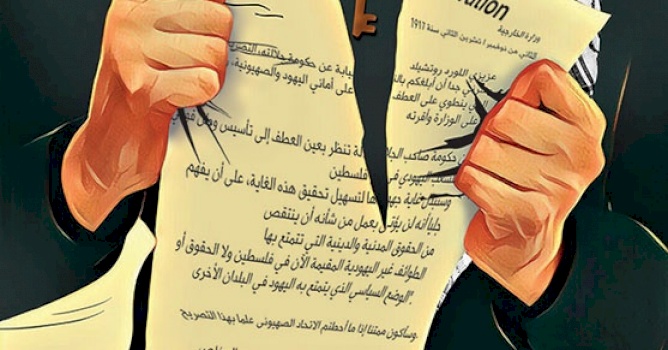 ation
وزارة الخارجية
الثاني من نوفمبر / تشرين الثاني سنة 1917
عزيزي اللورد روتشيلد
ني جدا أن أبلغكم بالن
يابة عن حكومة جلالته، التصر
الذي ينطوي على العطف
على أماني اليهود والصهيونية،
على الوزارة وأقرته
حكومة صاحب الجلا لة تنظر بعين العطف إلى تأسيس وطن قومي
للشعب اليهودي في فلسطين
وستبذل غاية جهدها لتسهيل تحقيق هذه الغاية، على أن يفهم
جليا أنه لن يؤتى بعمل من شأنه أن ينتقص
من الحقوق المدنية والدينية التي تتمتع بها
الطوائف غير اليهودية المقيمة الآن في فلسطين ولا الحقوق أو
الوضع السياسي الذي يتمتع به اليهود في البلدان الأخرى".
وسأكون ممتنا إذا ما أحطتم الاتحاد الصهيوني علما بهذا التصريح.